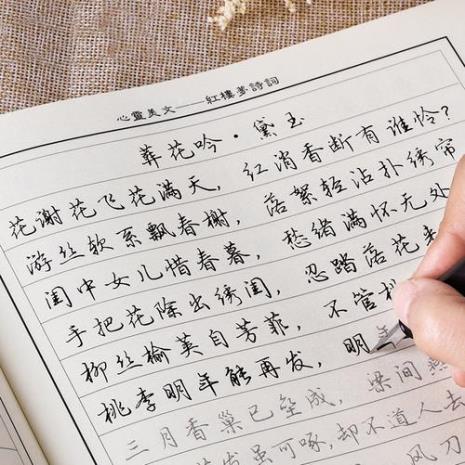 心靈美文——紅樓夢詩詞
葬花吟·黛玉
花谢花飞花满天,红消香断有谁怜?
游丝软系飘春榭,落絮轻沾扑绣帘
闺中女儿惜春暮,愁绪满怀无处
手把花除出绣闺,忍踏落花来
柳丝榆荚自芳菲,不管
桃李明年能再发,明年
三月香巢已垒成,梁间
发虽可啄,却不道人去
风刀